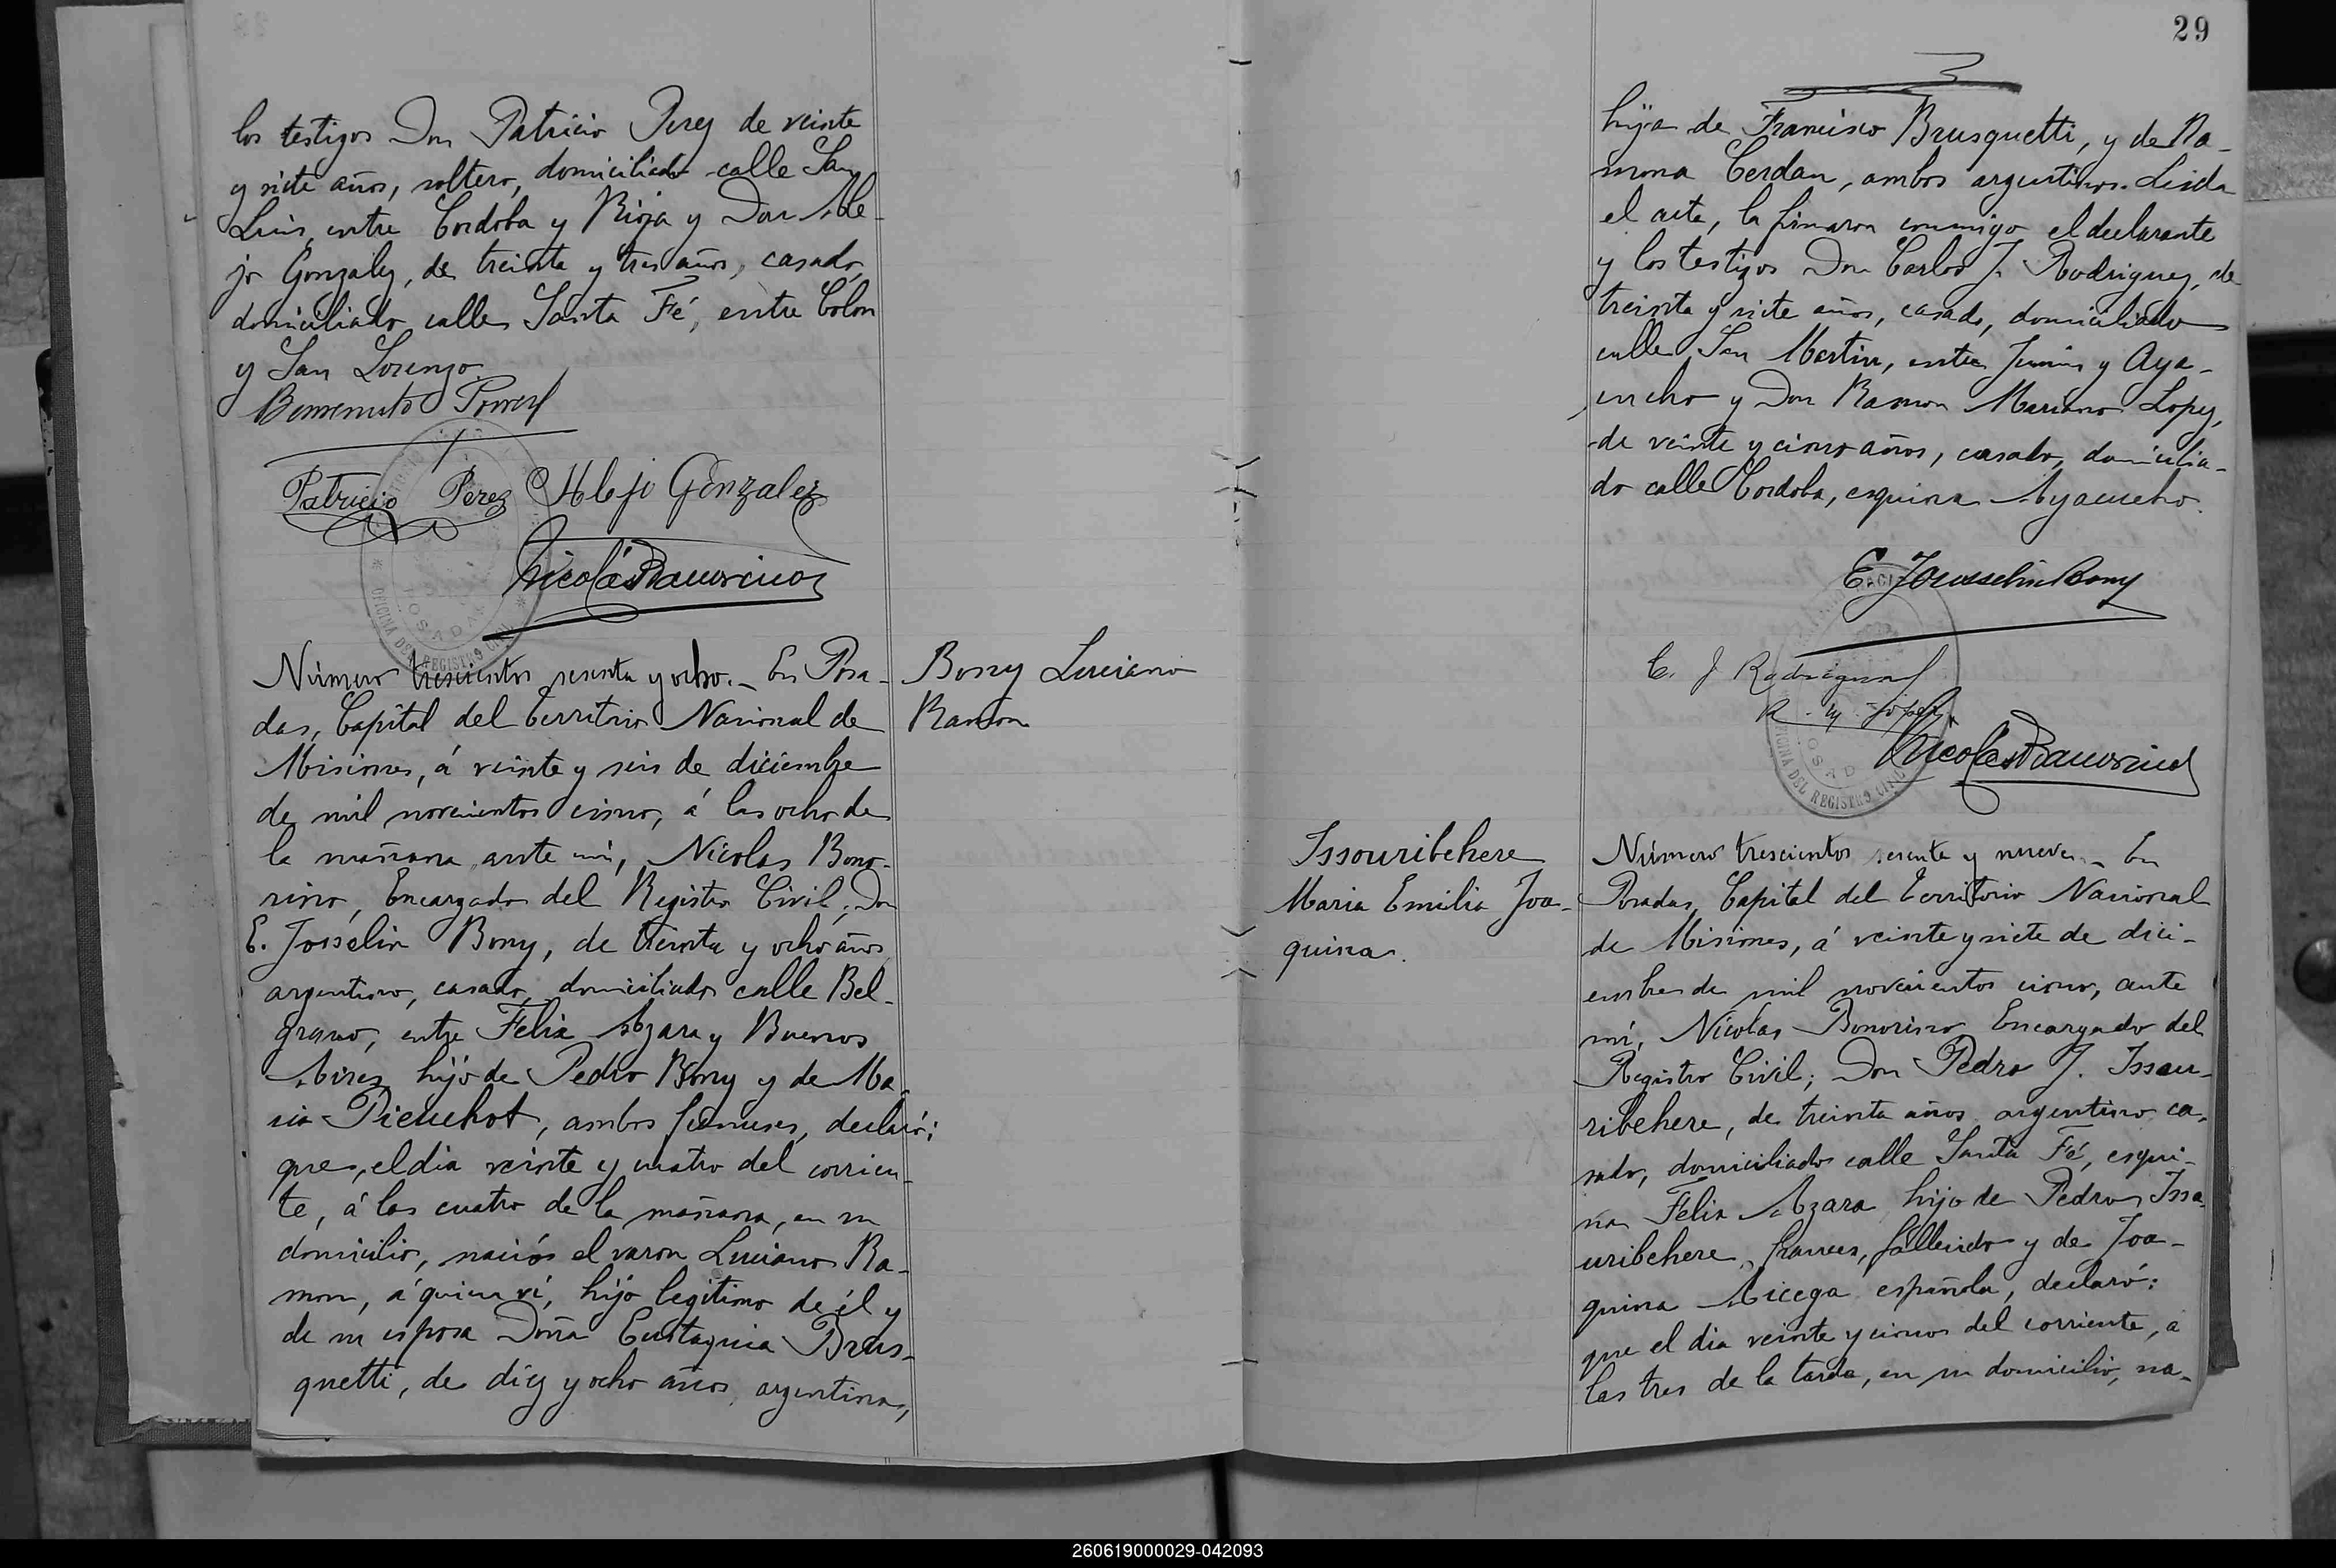 los testigos Don Patricio Perez de veinte
y siete años, soltero, domiciliado calle San
Luis, entre Cordoba y Rioja y Don Ale-
jo Gonzalez, de treinta y tres años, casado,
domiciliado calle Santa Fé, entre Colon
y San Lorenzo.
Benvenuto
Patricio Perez Alejo Gonzalez
Nicolás Bonorino
OFICINA DEL REGISTRO CIVIL
POSADAS
Número trescientos sesenta y ocho._ En Posa-
das, Capital del Territorio Nacional de
Misiones, á veinte y seis de diciembre
de mil novecientos cinco, á las ocho de
la mañana, ante mi, Nicolas Bono-
rino, Encargado del Registro Civil; Don
E. Josselin Bony, de treinta y ocho años
argentino, casado, domiciliado calle Bel-
grano, entre Felix Azara y Buenos
Aires, hijo de Pedro Bony y de Ma-
ria Pieuchot, ambos franceses, declaró:
que, el dia veinte y cuatro del corrien-
te, á las cuatro de la mañana, en su
domicilio, nació el varon Luciano Ra-
mon, á quien ví, hijo legitimo de él y
de su esposa Doña Eustaquia Brus-
quetti, de diez y ocho años, argentina,
Bony Luciano
Ramon
29
hija de Francisco Brusquetti, y de Ra-
mona Cerdan, ambos argentinos. Leida
el acta, la firmaron conmigo el declarante
y los testigos Don Carlos J. Rodriguez, de
treinta y siete años, casado, domiciliado
calle San Martin, entre Junin y Aya-
cucho y Don Ramon Mariano Lopez,
de veinte y cinco años, casado, domicilia-
do calle Cordoba, esquina Ayacucho.
E. Josselin Bony
C. J. Rodriguez
R. M. Lopez
Nicolás Bonorino
OFICINA DEL REGISTRO CIVIL
Issouribehere
Maria Emilia Joa-
quina.
Número trescientos sesenta y nueve._ En
Posadas, Capital del Territorio Nacional
de Misiones, á veinte y siete de dici-
embre de mil novecientos cinco, ante
mí, Nicolas Bonorino Encargado del
Registro Civil; Don Pedro J. Issou-
ribehere, de treinta años, argentino ca-
sado, domiciliado calle Santa Fé, esqui-
na Felix Azara, hijo de Pedro Isso-
uribehere, frances, fallecido y de Joa-
quina Aicega, española, declaró:
que el dia veinte y cinco del corriente, a
las tres de la tarde, en su domicilio, na-
260619000029-042093